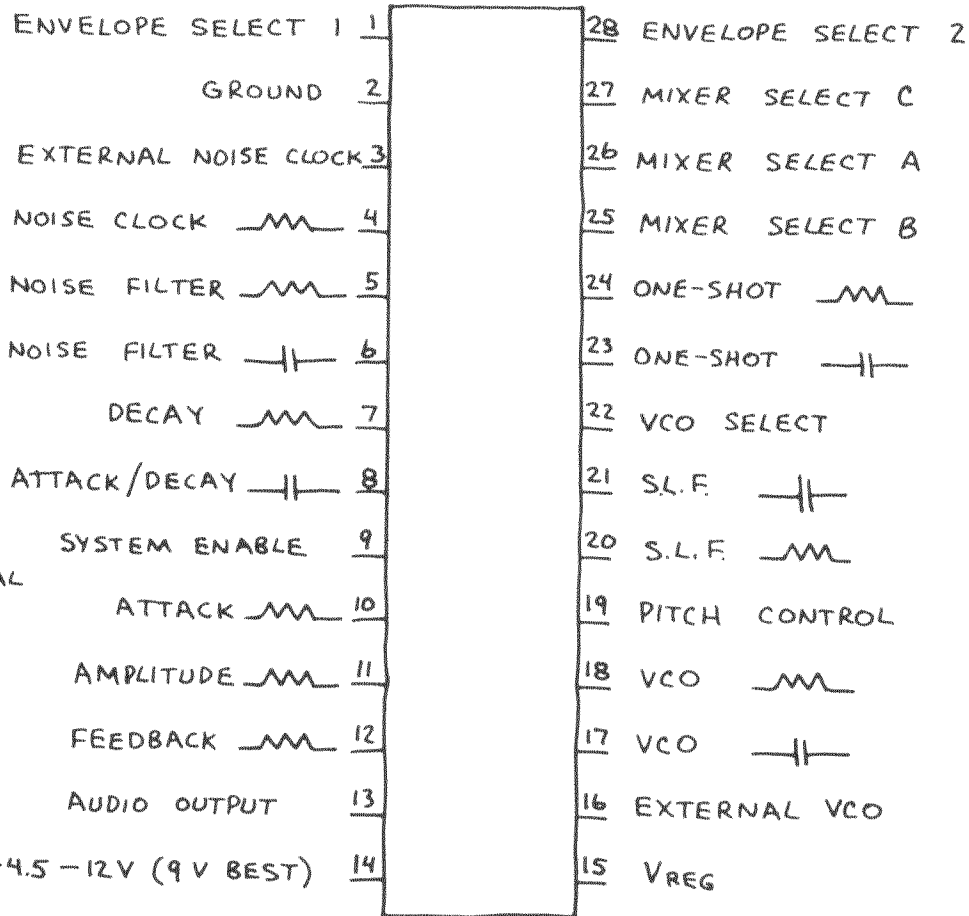 ENVELOPE SELECT 1 1
GROUND 2
EXTERNAL NOISE CLOCK 3
NOISE CLOCK 4
NOISE FILTER 5
NOISE FILTER 6
DECAY 7
ATTACK/DECAY 8
SYSTEM ENABLE 9
AL
ATTACK 10
AMPLITUDE 11
FEEDBACK 12
AUDIO OUTPUT 13
4.5-12V (9 V BEST) 14
28 ENVELOPE SELECT 2
27 MIXER SELECT C
26 MIXER SELECT A
25 MIXER SELECT B
24 ONE-SHOT
23 ONE-SHOT
22 VCO SELECT
21 S.L.F.
20 S.L.F.
19 PITCH CONTROL
18 VCO
17 VCO
16 EXTERNAL VCO
15 VREG